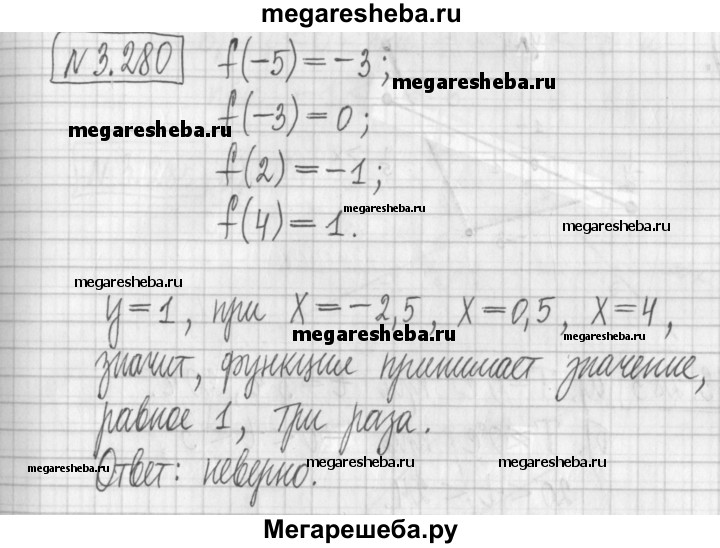 megaresheba.ru
N 3.280 f(-5)=-3;
megaresheba.ru
f(-3)=0;
megaresheba.ru
f(2)=-1;
f(4)=1.
megaresheba.ru
megaresheba.ru
megaresheba.ru
y=1, при x=-2,5, x=0,5, x=4,
megaresheba.ru
значит, функция принимает значение,
равное 1, три раза.
Ответ: неверно.
megaresheba.ru
megaresheba.ru
megaresheba.ru
Мегарешеба.ру